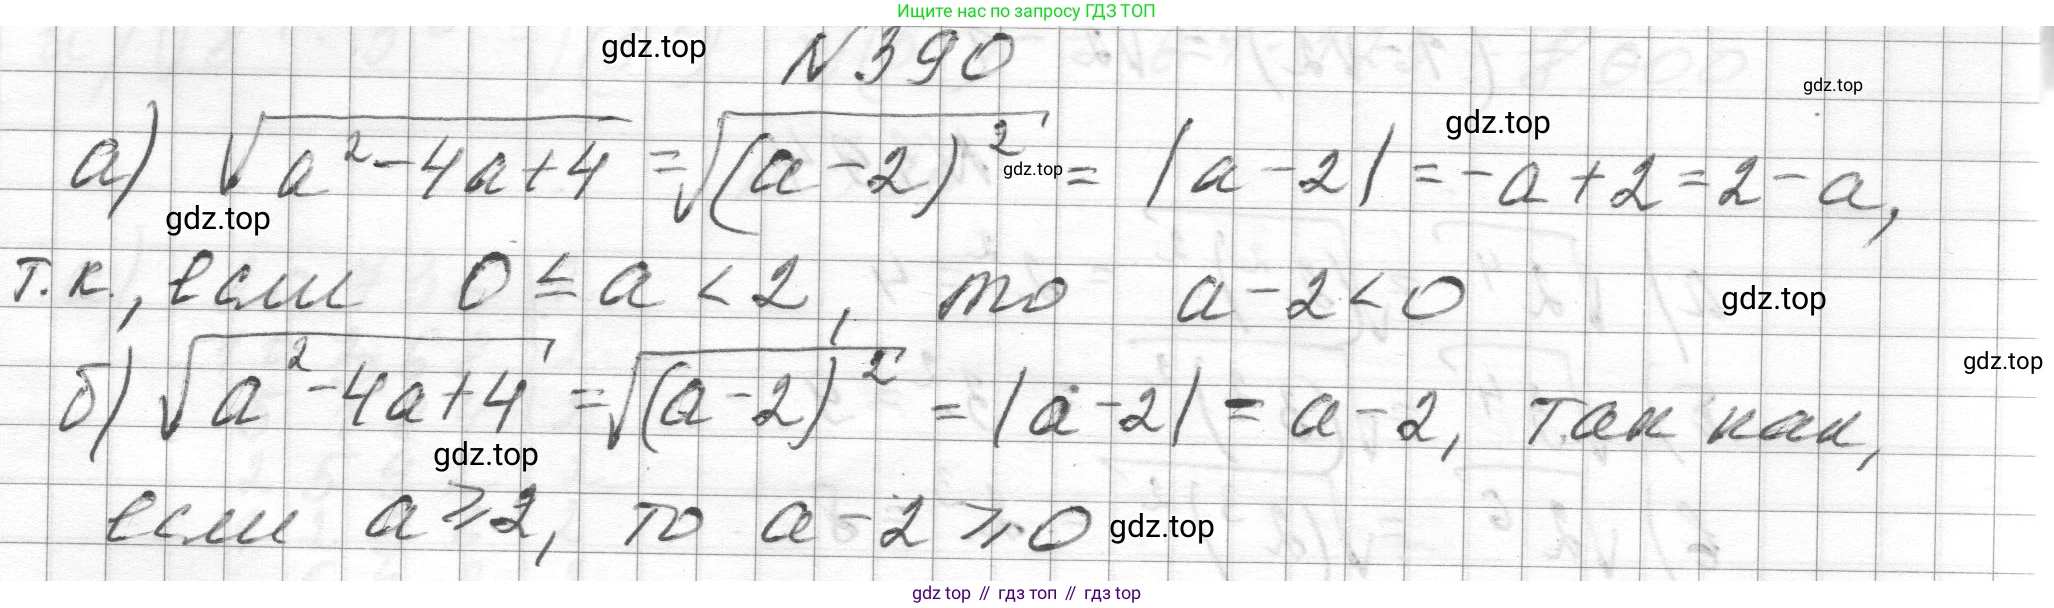 Ищите нас по запросу ГДЗ ТОП
gdz.top
N 390
gdz.top
а) √(a² - 4a + 4) = √((a - 2)²) = |a - 2| = -a + 2 = 2 - a,
gdz.top
gdz.top
gdz.top
т.к., если 0 ≤ a < 2, то a - 2 < 0
gdz.top
gdz.top
б) √(a² - 4a + 4) = √((a - 2)²) = |a - 2| = a - 2, так как,
gdz.top
если a ≥ 2, то a - 2 ≥ 0
gdz.top
gdz top // гдз топ // gdz top